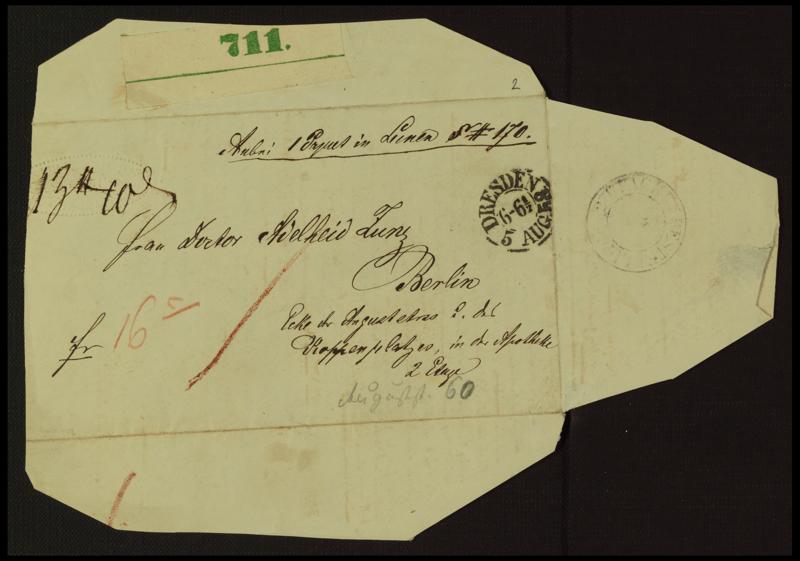 711.
2
Anbei 1 Paquet in Leinen S # 170.
13 # 10
DRESDEN
6-6½
5 AUG 58
Frau Doctor Adelheid Zunz
Berlin
Ecke der Auguststras u. des
Koppenplatzes, in der Apotheke
2 Etage
fr
16
Auguststr. 60